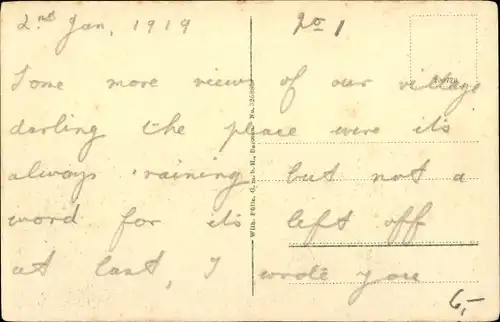 2nd Jan, 1919 No 1
Some more views of our village
darling the place were its
always raining but not a
word for its left off
at last, I wrote you
6,-
Wilh. Fülle, G. m. b. H., Barmen